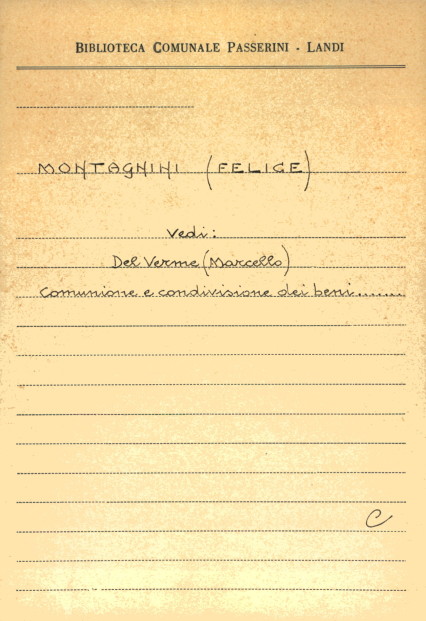 BIBLIOTECA COMUNALE PASSERINI - LANDI
MONTAGNINI (FELICE)
Vedi:
Del Verme (Marcello)
Comunione e condivisione dei beni.......
C